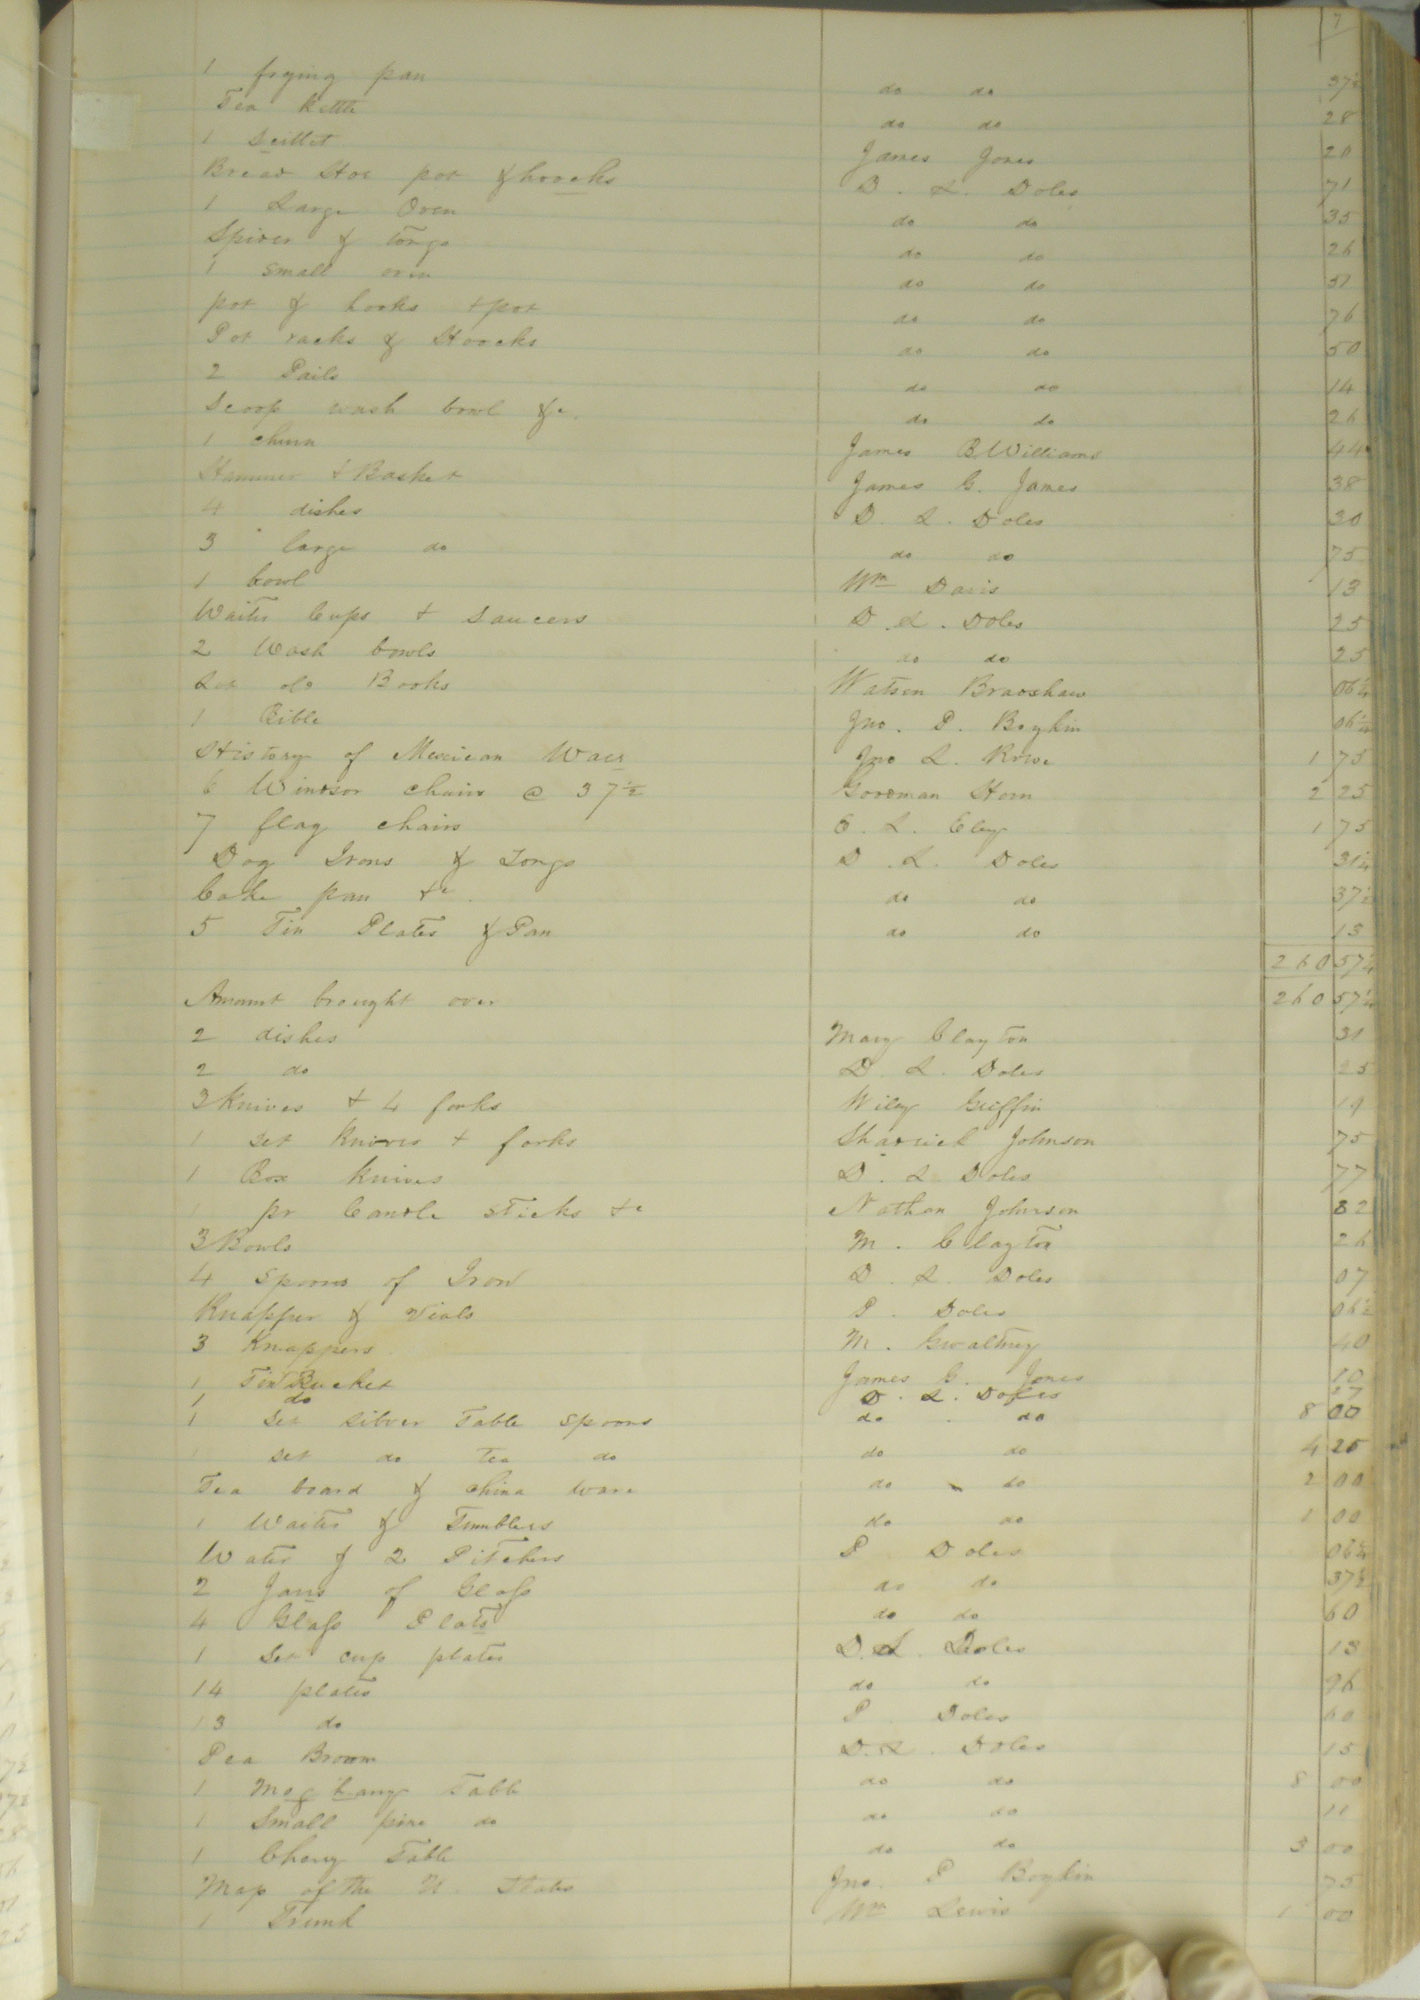 7
1 frying pan do do 37½
Tea Kettle do do 28
1 Scillet James Jones 20
Bread Hoe pot & hoocks D. L. Doles 71
1 Large Oven do do 35
Spider & tongs do do 26
1 small oven do do 51
pot & hooks + pot do do 76
Pot racks & Hoocks do do 50
2 Pails do do 14
Scoop wash bowl &c. do do 26
1 churn James B. Williams 44
Hammer & Basket James G. James 38
4 dishes D. L. Doles 30
3 large do do do 75
1 bowl Wm Davis 13
Waiter Cups + Saucers D. L. Doles 25
2 Wash bowls do do 25
Lot old Books Watson Bradshaw 06¼
1 Bible Jno. P. Boykin 06½
History of Mexican Waer Jno L. Rowe 1 75
6 Windsor chairs @ 37½ Goodman Horn 2 25
7 flag chairs E. L. Eley 1 75
Dog Irons & Tongs D. L. Doles 31¼
Cake pan +c. do do 37½
5 Tin Plates & Pan do do 13
260 57¼
Amount brought over 260 57¼
2 dishes Mary Clayton 31
2 do D. L. Doles 25
3 Knives + 4 forks Wiley Griffin 19
1 set Knives + forks Shadrick Johnson 75
1 Box knives D. L. Doles 77
1 pr Candle sticks +c Nathan Johnson 82
3 Bowls M. Clayton 26
4 spoons of Iron D. L. Doles 07
Knapper & Vials P. Doles 06½
3 Knappers M. Gwaltney 40
1 Tin Bucket James G. Jones 10
1 do D. L. Doles 27
1 Set silver Table spoons do do 8 00
1 set do tea do do do 4 25
Tea board & china ware do do 2 00
1 Waiter & Tumblers do do 1 00
Water & 2 Pitchers P Doles 06¼
2 Jars of Glass do do 37½
4 Glass Plats do do 60
1 Set cup plates D. L. Doles 13
14 plates do do 96
13 do P Doles 60
Pea Broom D. L. Doles 15
1 Moghany Table do do 8 00
1 Small pine do do do 11
1 Cherry Table do do 3 00
Map of the U. States Jno. P Boykin 75
1 Trunk Wm Lewis 1 00